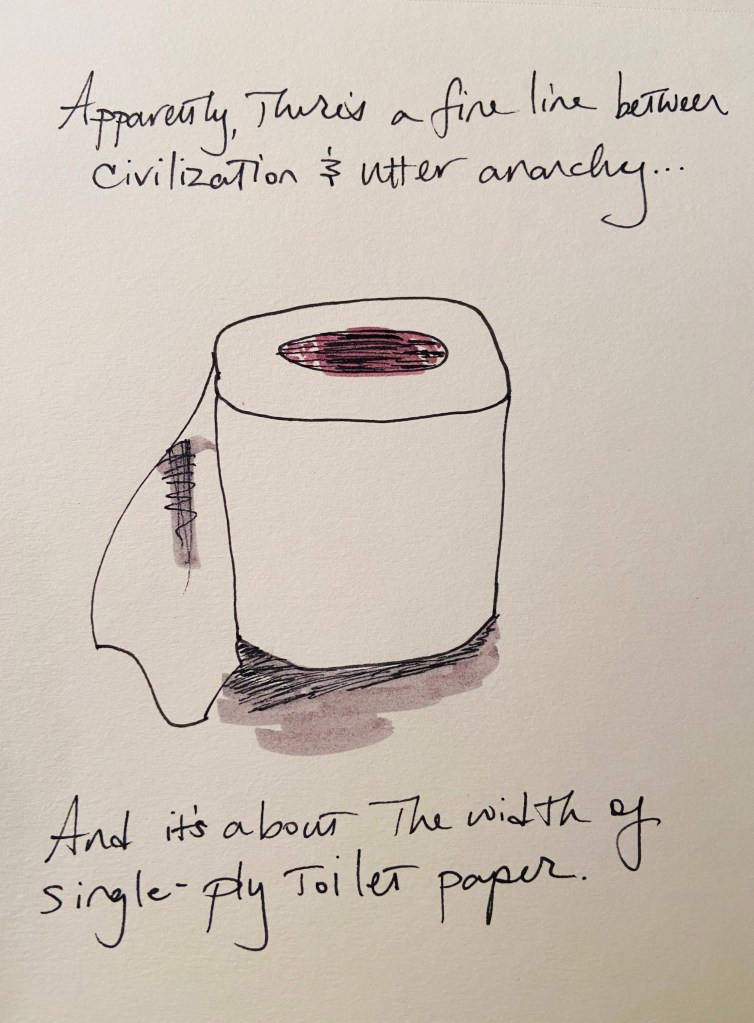 Apparently, There's a fine line between
civilization & utter anarchy...
And it's about The width of
single-ply Toilet paper.